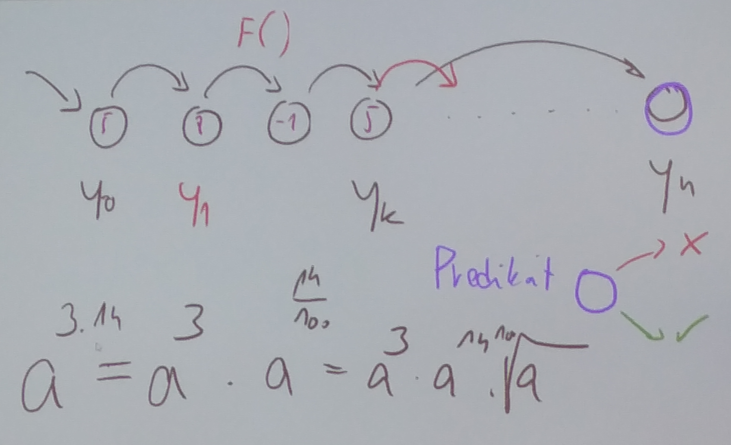 F()
5 9 -1 5
y₀ y₁ yₖ yₙ
Predikát ✗ ✓
a^3.14 = a^3 · a^(14/100) = a^3 · a^14 · ¹⁰√a